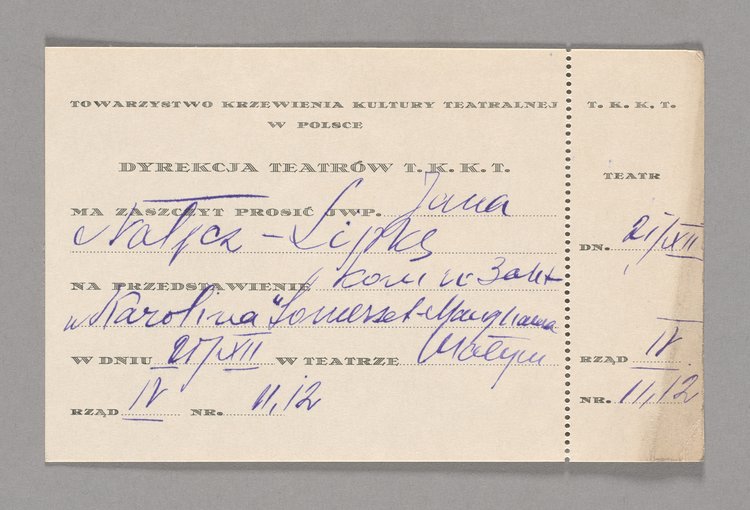 TOWARZYSTWO KRZEWIENIA KULTURY TEATRALNEJ
W POLSCE
DYREKCJA TEATRÓW T. K. K. T.
MA ZASZCZYT PROSIĆ JWP. Jana
Nałęcz-Lipkę
NA PRZEDSTAWIENIE kom w 3 akt
"Karolina" Somerset-Maughama
W DNIU 21/XII W TEATRZE Małym
RZĄD IV NR. 11, 12
T. K. K. T.
TEATR
DN. 21/XII
RZĄD IV
NR. 11, 12